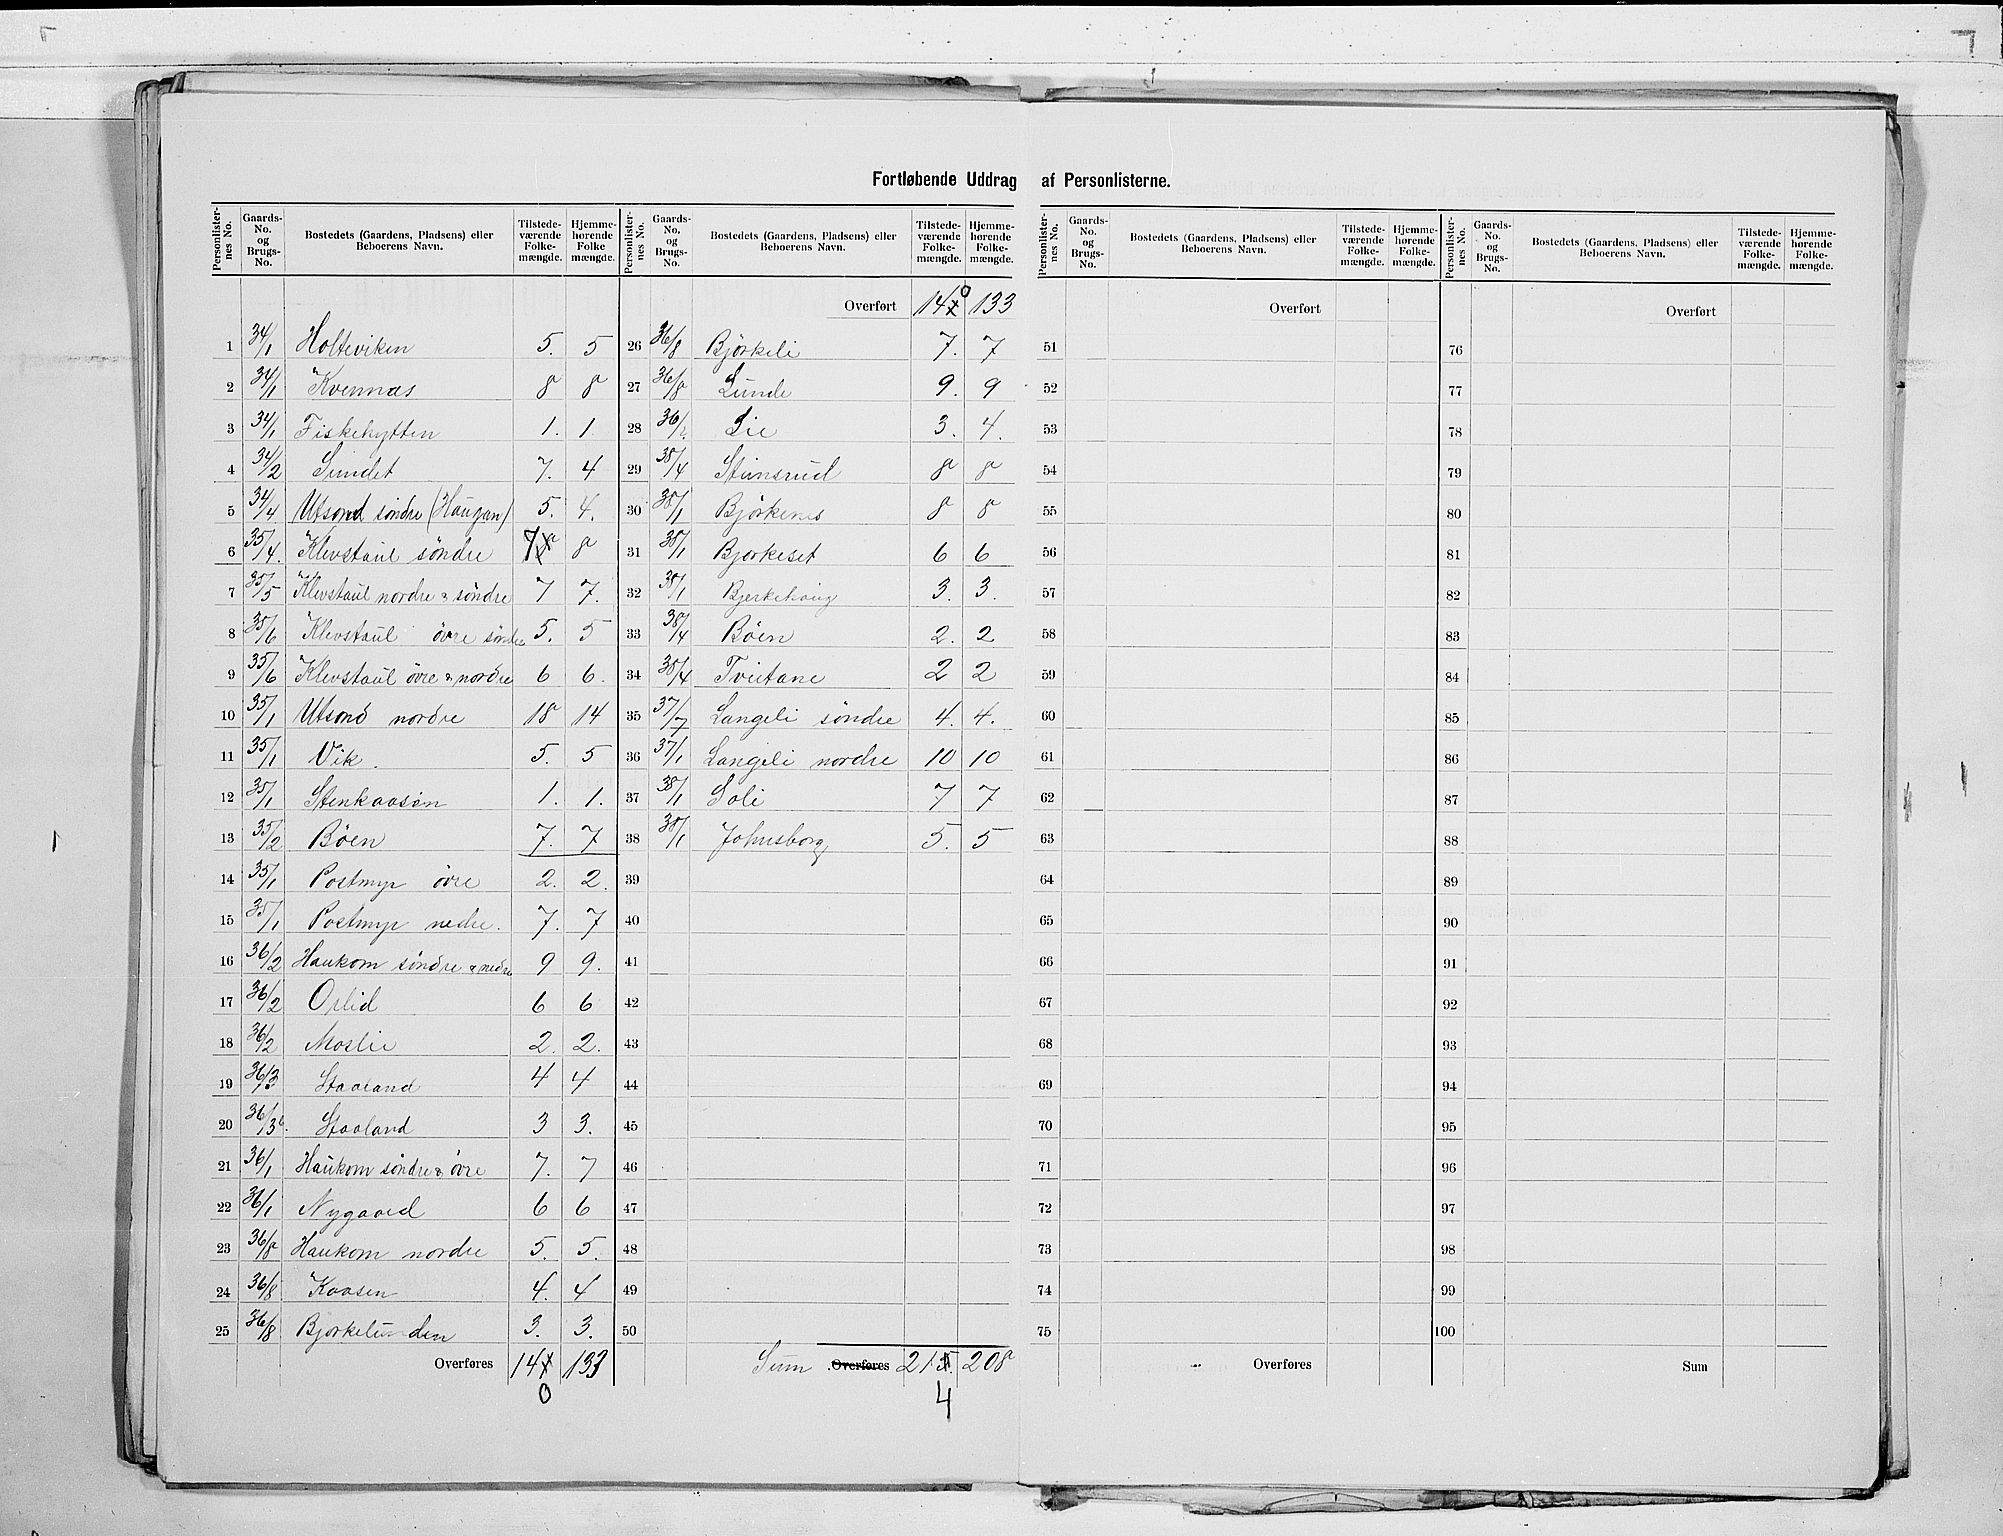 Fortløbende Uddrag af Personlisterne.
Personlisternes No. Gaards-No. og Brugs-No. Bostedets (Gaardens, Pladsens) eller Beboerens Navn. Tilstedeværende Folkemængde. Hjemmehørende Folkemængde.
1 34/1 Holteviken 5. 5
2 34/1 Kvennæs 8 8
3 34/1 Fiskehytten 1. 1
4 34/2 Sundet 7. 4
5 34/4 Utsond søndre (Haugan) 5. 4.
6 35/4. Klevstaul søndre 7 8
7 35/5 Klevstaul nordre & søndre 7 7.
8 35/6 Klevstaul øvre søndre 5. 5
9 35/6 Klevstaul øvre & nordre 6 6.
10 35/1 Utsond nordre 18 14
11 35/1 Vik. 5. 5
12 35/1 Stenkaasen 1. 1.
13 35/2 Bøen 7. 7
14 35/1 Postmyr øvre 2. 2.
15 35/1 Postmyr nedre. 7. 7
16 36/2 Haukom søndre & nedre 9 9.
17 36/2 Oslid 6 6
18 36/2 Moslie 2. 2.
19 36/3 Staaland 4 4
20 36/3b. Staaland 3 3.
21 36/1 Haukom søndre & øvre 7. 7
22 36/1 Nygaard 6 6
23 36/8 Haukom nordre 5. 5.
24 36/8 Kaasen 4. 4
25 36/8 Bjørkelunden 3. 3.
Overføres 14 133
0
Personlisternes No. Gaards-No. og Brugs-No. Bostedets (Gaardens, Pladsens) eller Beboerens Navn. Tilstedeværende Folkemængde. Hjemmehørende Folkemængde.
Overført 140 133
26 36/8 Bjørkeli 7. 7
27 36/8 Lunde 9. 9
28 36/2. Lie 3. 4.
29 38/4 Stensrud 8 8
30 38/1 Bjørkenes 8 8
31 38/1 Bjørkeset 6 6
32 38/1 Bjerkehaug 3. 3.
33 38/4 Bøen 2. 2
34 38/4 Tveitane 2 2
35 37/7 Langeli søndre 4. 4.
36 37/1 Langeli nordre 10 10
37 38/1 Soli 7 7
38 38/1 Johnsborg 5. 5
39
40
41
42
43
44
45
46
47
48
49
50
Sum Overføres 215. 208
4
Personlisternes No. Gaards-No. og Brugs-No. Bostedets (Gaardens, Pladsens) eller Beboerens Navn. Tilstedeværende Folkemængde. Hjemmehørende Folkemængde.
Overført
51
52
53
54
55
56
57
58
59
60
61
62
63
64
65
66
67
68
69
70
71
72
73
74
75
Overføres
Personlisternes No. Gaards-No. og Brugs-No. Bostedets (Gaardens, Pladsens) eller Beboerens Navn. Tilstedeværende Folkemængde. Hjemmehørende Folkemængde.
Overført
76
77
78
79
80
81
82
83
84
85
86
87
88
89
90
91
92
93
94
95
96
97
98
99
100
Sum